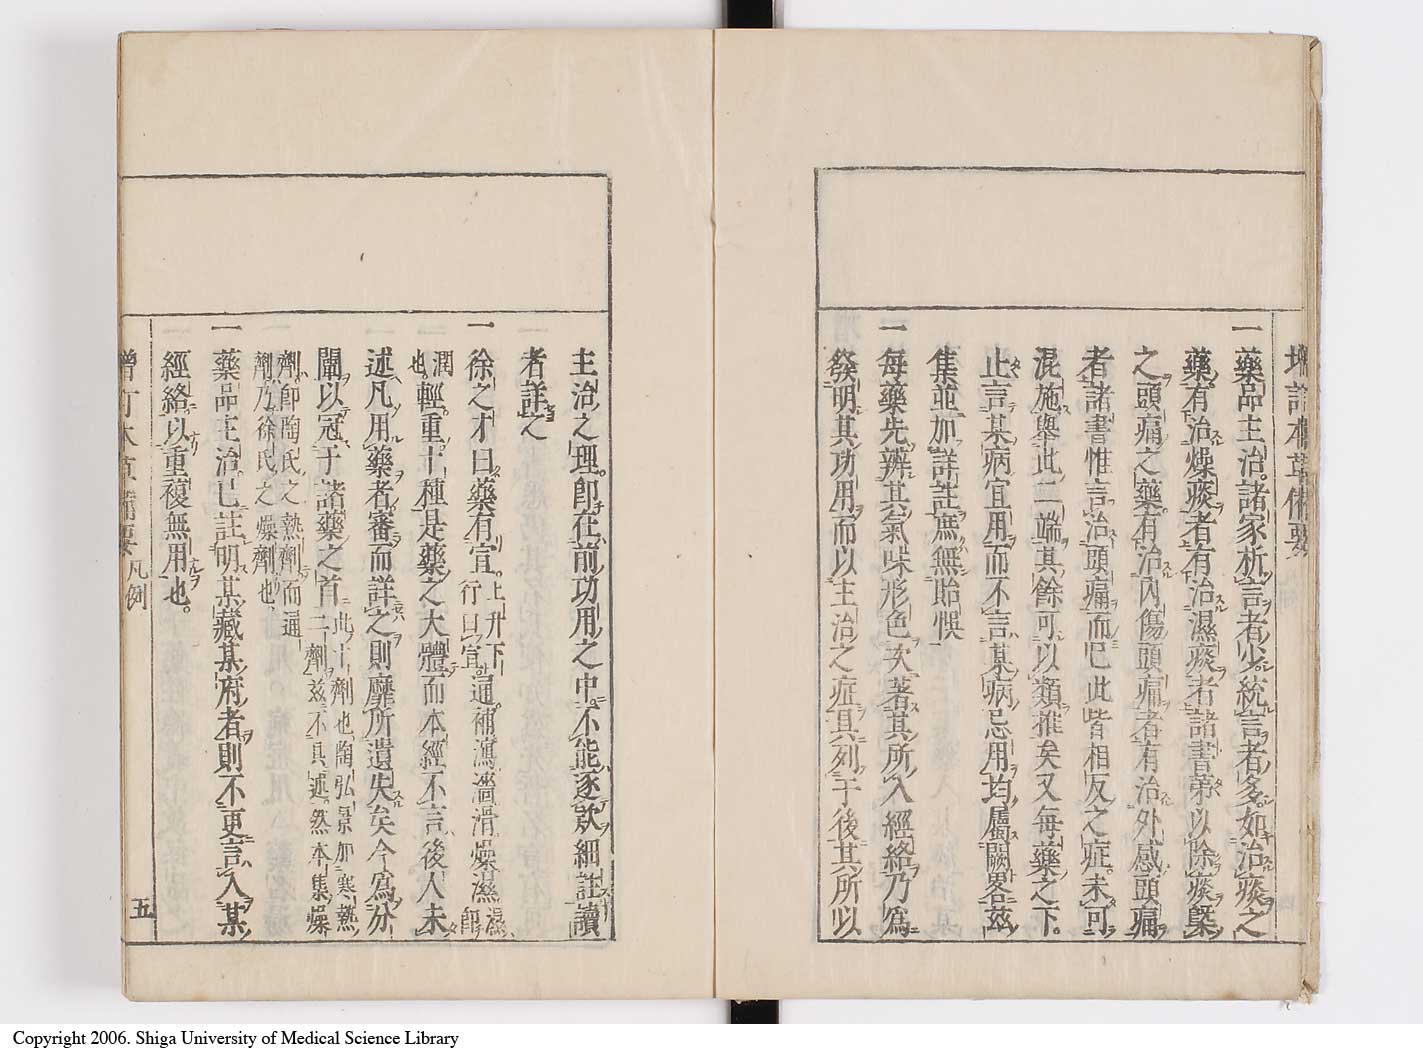 增訂本草備要
一藥品主治。諸家析言者少。統言者多。如治痰之
藥。有治燥痰者。有治濕痰者。諸書第以除痰槩
之。頭痛之藥。有治內傷頭痛者。有治外感頭痛
者。諸書惟言治頭痛而已。此皆相反之症。未可
混施。舉此二端。其餘可以類推矣。又每藥之下。
止言某病宜用。而不言某病忌用。均屬闕畧。茲
集並加詳註。庶無貽悞。
一每藥先辨其氣味形色。次著其所入經絡。乃爲
發明其功用。而以主治之症具列于後。其所以
主治之理。卽在前功用之中。不能逐款細註。讀
者詳之
一徐之才曰。藥有宣。上升下行曰宣。通補瀉濇滑燥濕濕卽
潤也。輕重十種。是藥之大體。而本經不言。後人未
述。凡用藥者。審而詳之。則靡所遺失矣。今爲分
闡。以冠于諸藥之首。此十劑也。陶弘景加寒熱二劑。茲不具述。然本集燥
劑。卽陶氏之熱劑。而通劑乃徐氏之燥劑也。
一藥品主治。已註明某藏某府者。則不更言入某
經絡。以重複無用也。
增訂本草備要 凡例 五
Copyright 2006. Shiga University of Medical Science Library